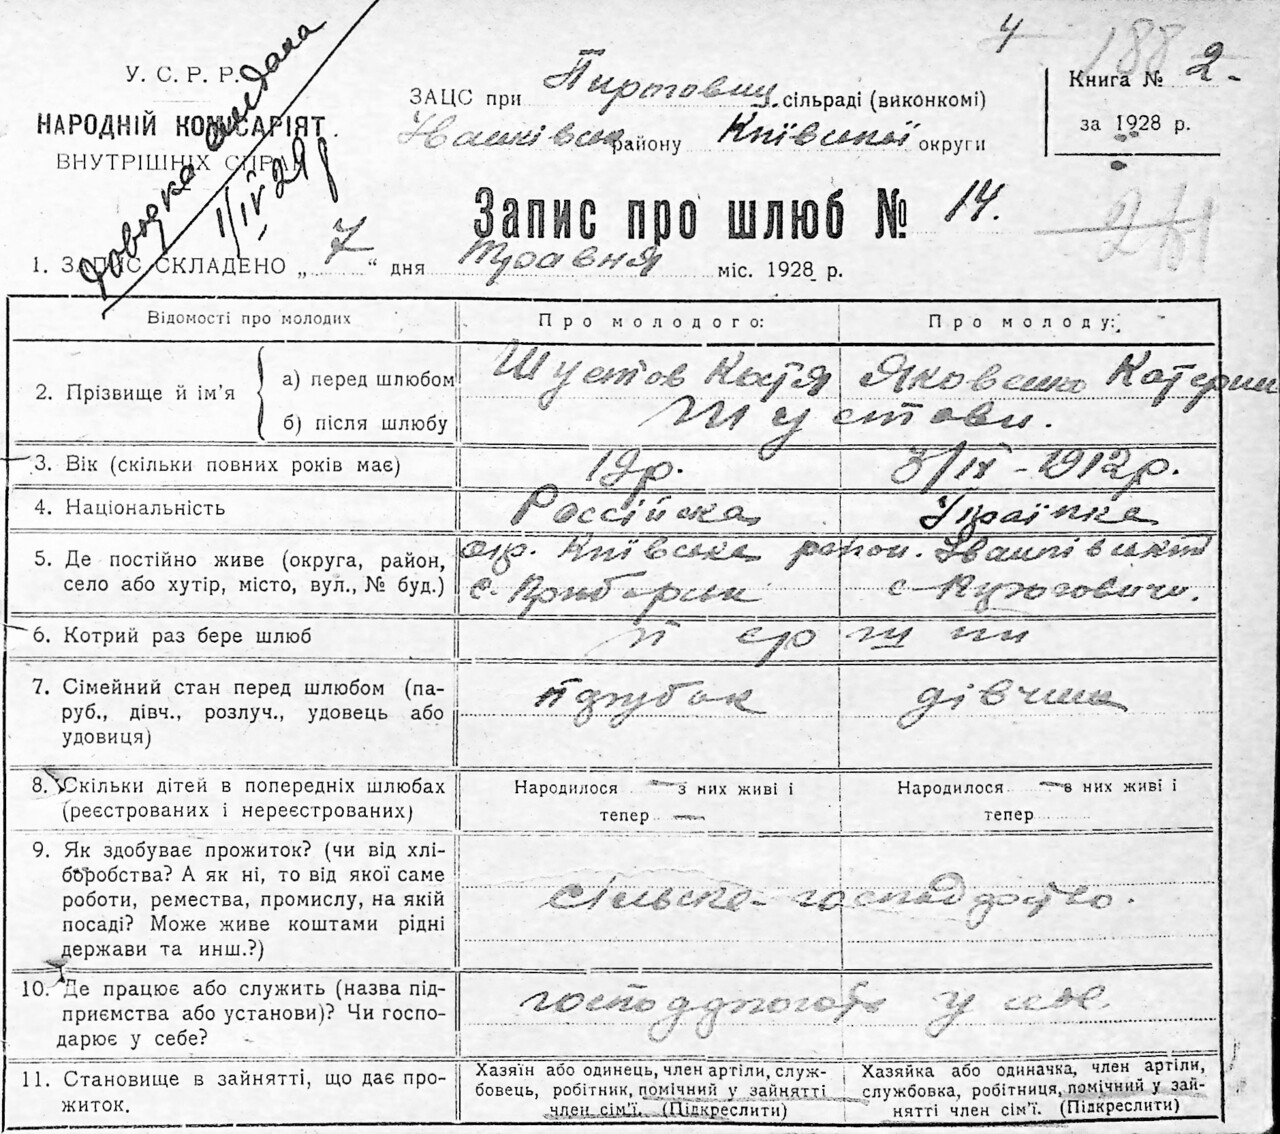 4
188 2.
У. С. Р. Р.
НАРОДНІЙ КОМІСАРІЯТ
ВНУТРІШНІХ СПРАВ
Довідка видана
1/IV 29 р
ЗАЦС при сільраді (виконкомі)
району Київської округи
Книга №
за 1928 р.
Запис про шлюб № 14.
1. ЗАПИС СКЛАДЕНО „ 7 “ дня Травня міс. 1928 р.
Відомості про молодих
Про молодого:
Про молоду:
2. Прізвище й ім'я
а) перед шлюбом
б) після шлюбу
Шустов Катя
Яковенко Катерин
Шустови.
3. Вік (скільки повних років має)
19 р.
/IX - 1912 р.
4. Національність
Россійска
Українка
5. Де постійно живе (округа, район,
село або хутір, місто, вул., № буд.)
окр. Київська район.
с. Прибірськ
с.
6. Котрий раз бере шлюб
7. Сімейний стан перед шлюбом (па-
руб., дівч., розлуч., удовець або
удовиця)
парубок
дівчина
8. Скільки дітей в попередніх шлюбах
(реєстрованих і нереєстрованих)
Народилося — з них живі і
тепер —
Народилося — з них живі і
тепер
9. Як здобуває прожиток? (чи від хлі-
боробства? А як ні, то від якої саме
роботи, ремества, промислу, на якій
посаді? Може живе коштами рідні
держави та инш.?)
сільське-господарство.
10. Де працює або служить (назва під-
приємства або установи)? Чи госпо-
дарює у себе?
у себе.
11. Становище в зайнятті, що дає про-
житок.
Хазяїн або одинець, член артіли, служ-
бовець, робітник, помічний у зайнятті
член сім'ї. (Підкреслити)
Хазяйка або одиначка, член артіли,
службовка, робітниця, помічний у зай-
нятті член сім'ї. (Підкреслити)